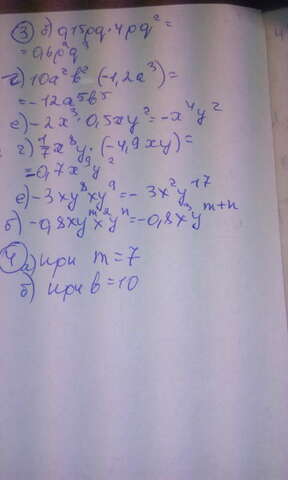 ③ б) 0,15pq · 4pq² =
= 0,6p²q³
г) 10a²b² · (-1,2a³) =
= -12a⁵b⁵
е) -2x³ · 0,5xy² = -x⁴y²
г) 1/7 x⁸y · (-4,9xy) =
= 0,7x⁹y²
е) -3xy⁸xy⁹ = -3x²y¹⁷
б) -0,8xyᵐxyⁿ = -0,8x²yᵐ⁺ⁿ
④ а) при m = 7
б) при b = 10